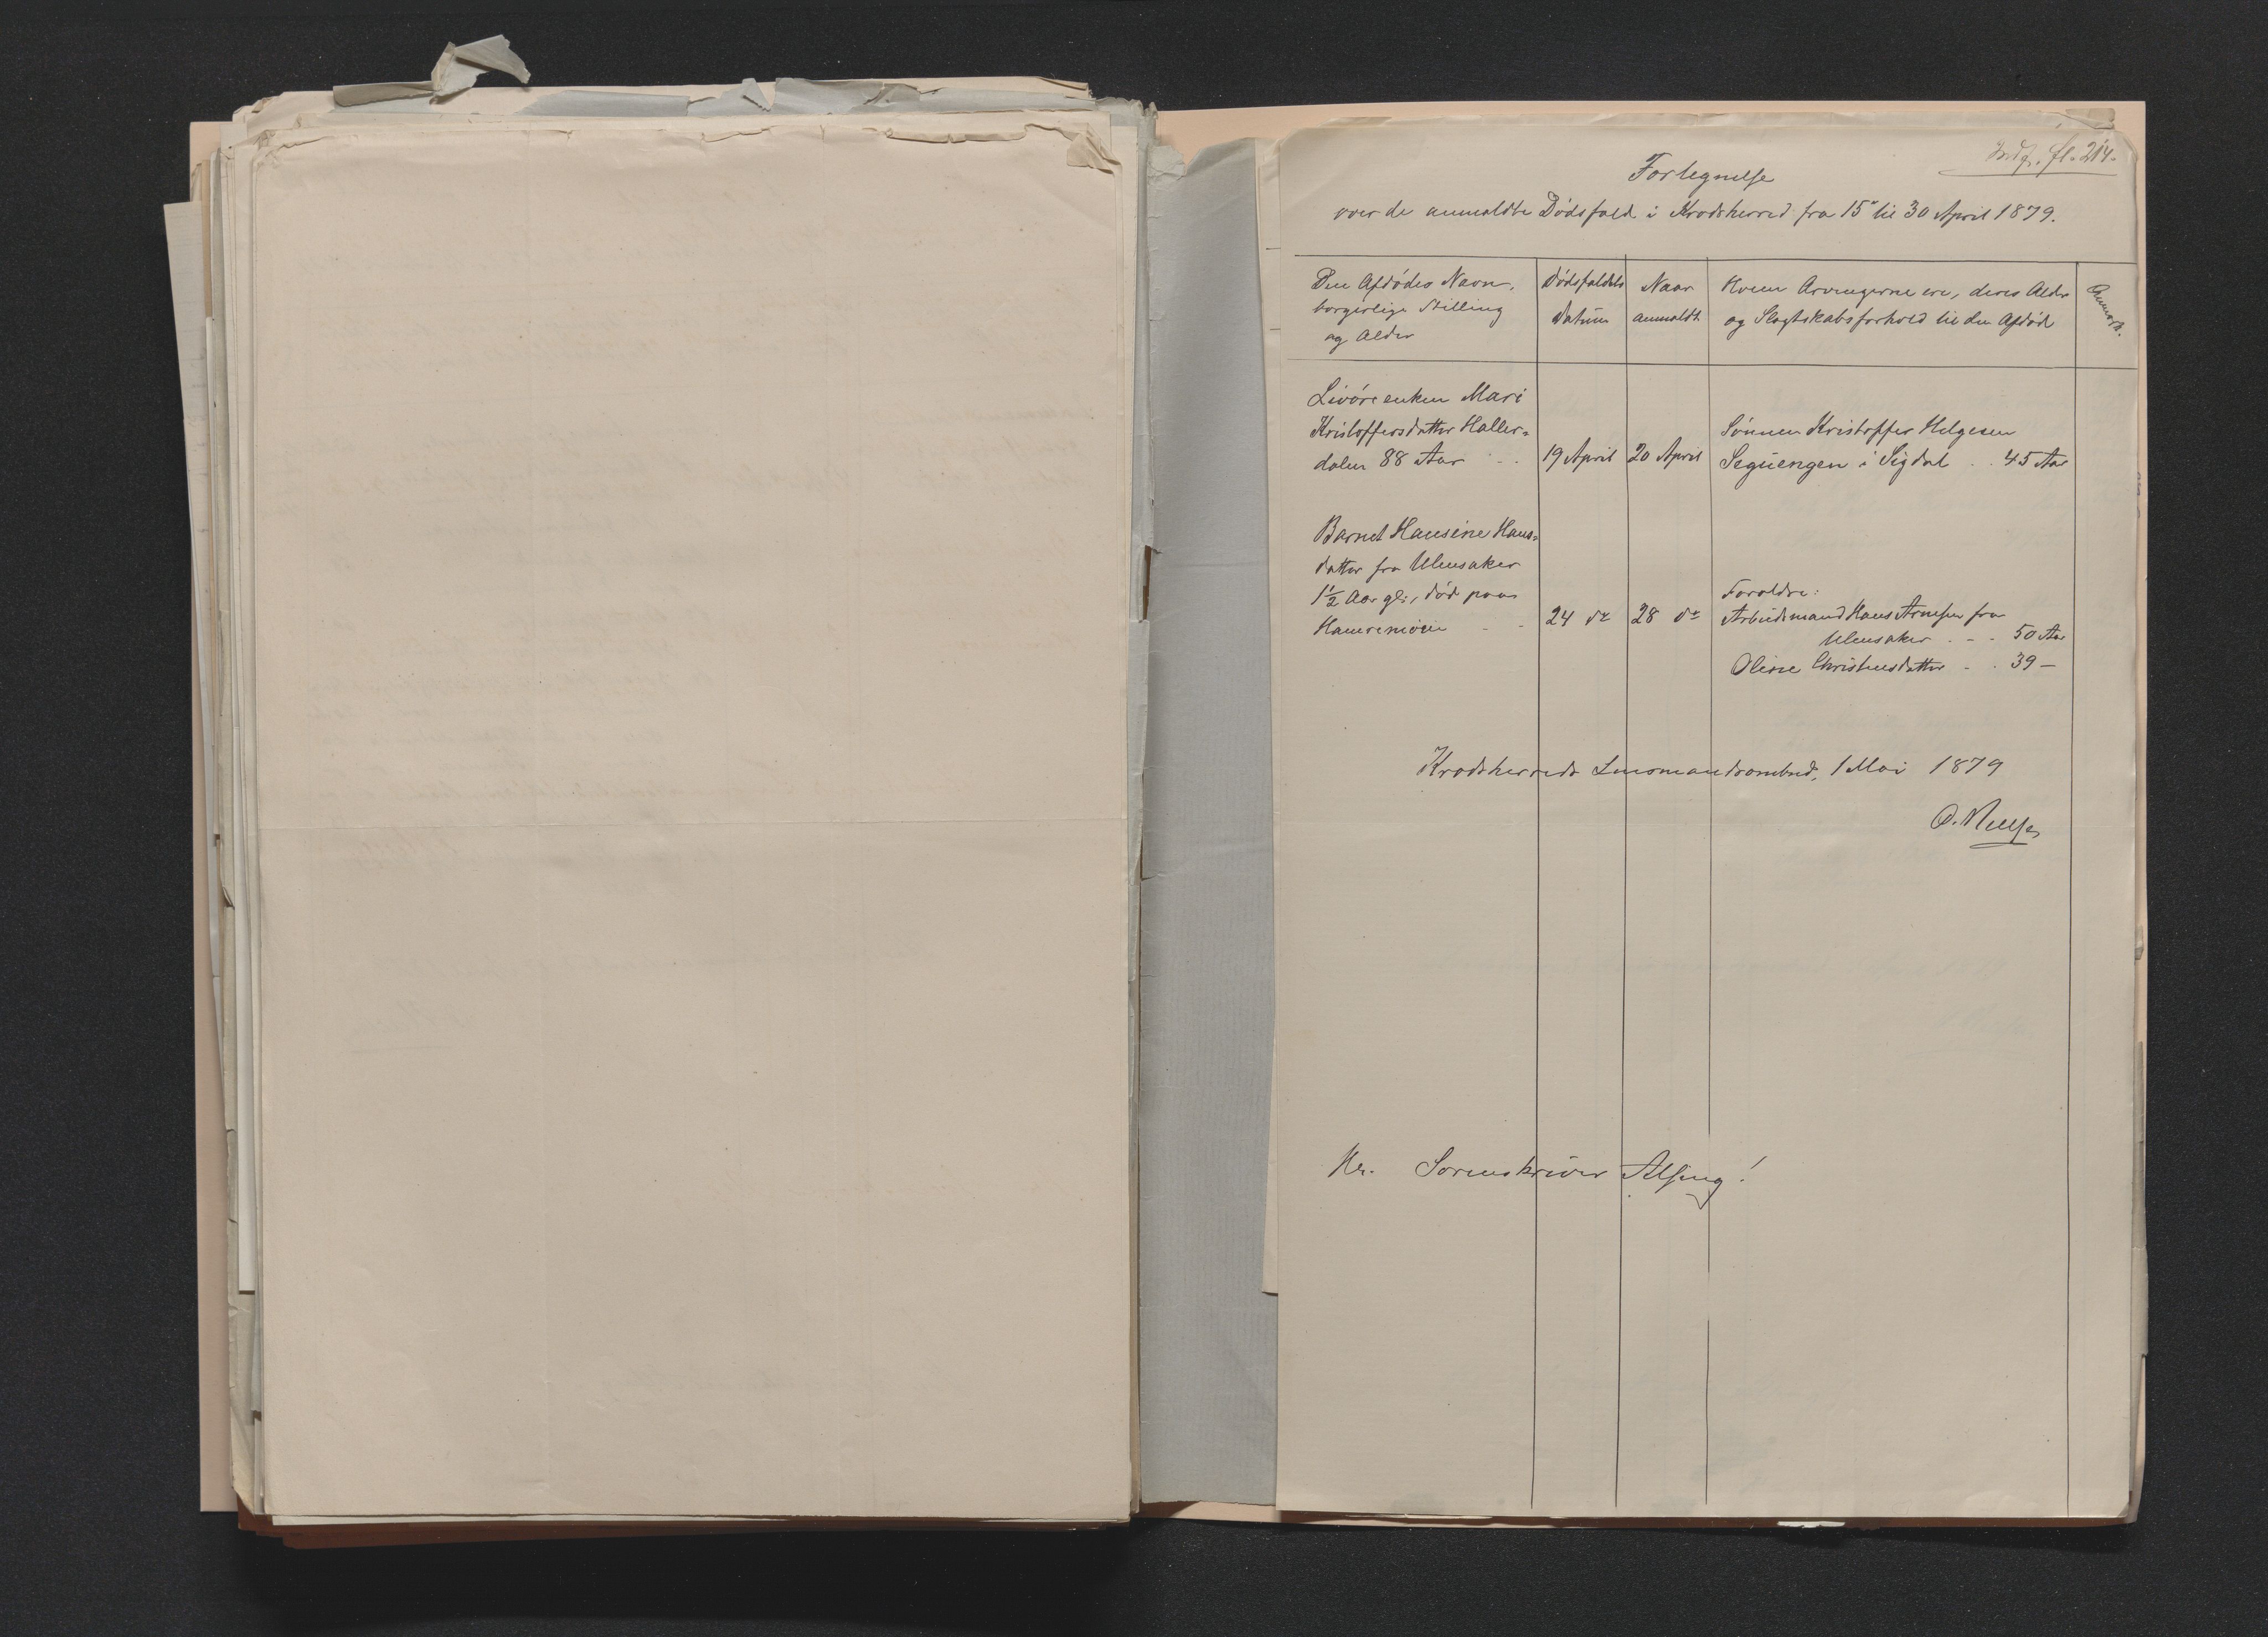 Indf. fl. 214.
Fortegnelse
over de anmeldte Dødsfald i Krodsherred fra 15de til 30 April 1879.
Den Afdødes Navn,
borgerlige Stilling
og Alder
Dødsfaldets
Datum
Naar
anmeldt
Hvem Arvingerne ere, deres Alder
og Slægtskabsforhold til den Afdøde
Anmærk.
Livøreenken Mari
Kristoffersdatter Haller-
dalen 88 Aar
19 April
20 April
Sønnen Kristoffer Helgesen
Seguengen i Sigdal . . 45 Aar
Barnet Hansine Hans-
datter fra Ulensaker
1½ Aar gl., død paa
Hamremoen
24 do
28 do
Forældre:
Arbeidsmand Hans Arnesen fra
Ulensaker . - - 50 Aar
Oline Christensdatter - . 39 —
Krodsherreds Lensmandsombud, 1 Mai 1879
Hr. Sorenskriver